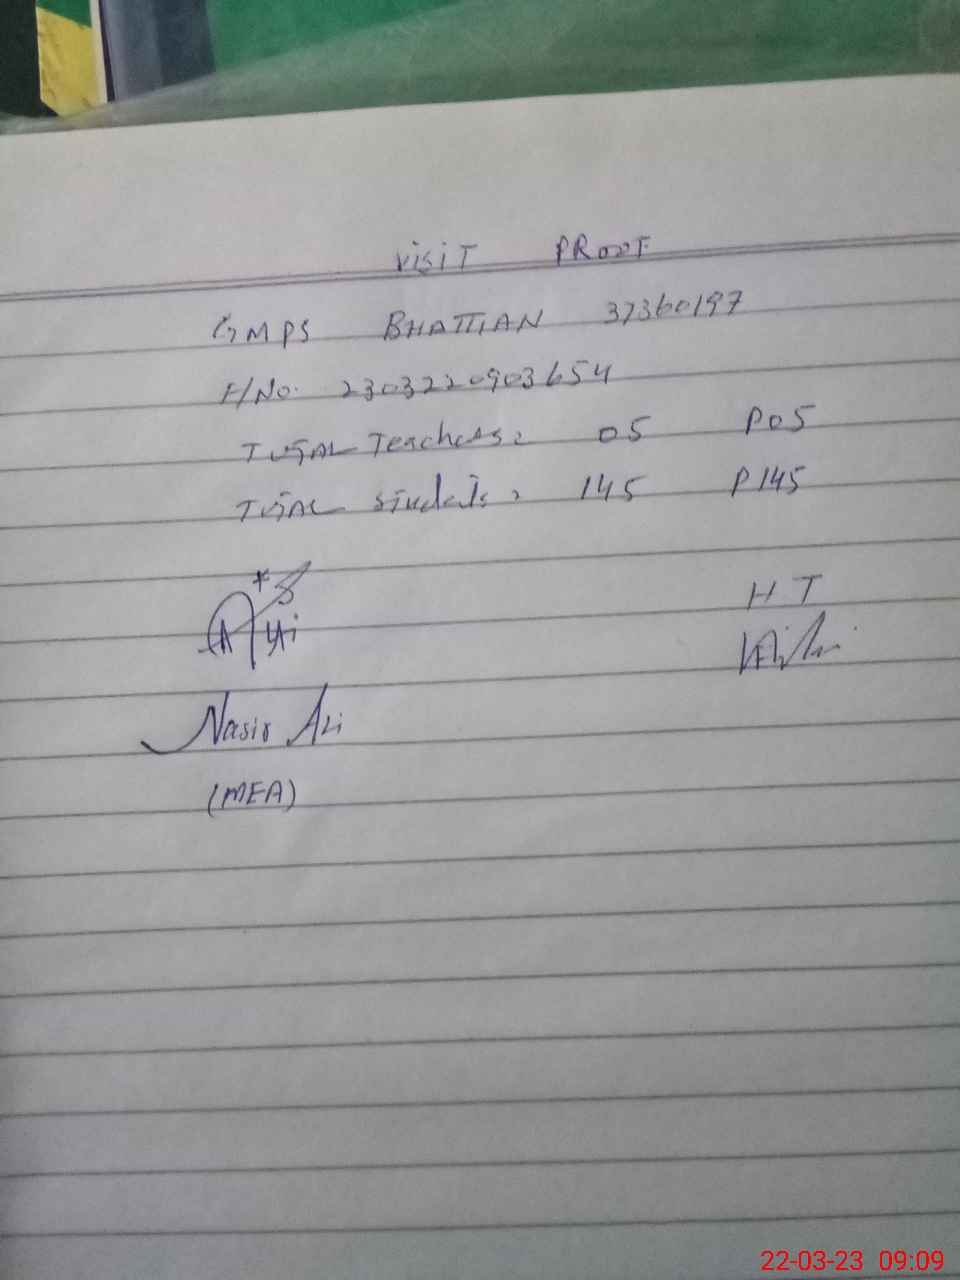 VISIT PROOF
GMPS BHATTIAN 37360197
F/No. 2303220903654
TOTAL Teachers: 05 P05
TOTAL students: 145 P145
HT
Nasir Ali
(MEA)
22-03-23 09:09